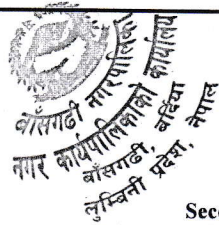 बाँसगढी नगरपालिका
नगर कार्यपालिकाको कार्यालय
बाँसगढी, बर्दिया
लुम्बिनी प्रदेश, नेपाल
Seco